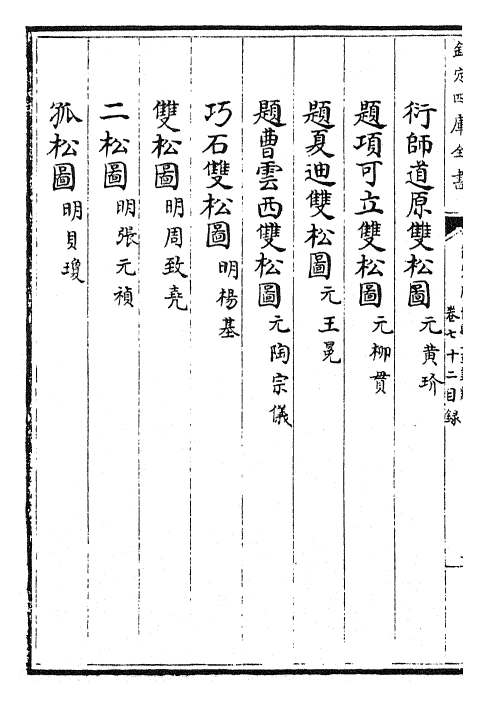 欽定四庫全書
卷七十二目録
衍師道原雙松圖 元黄玠
題項可立雙松圖 元柳貫
題夏迪雙松圖 元王冕
題曹雲西雙松圖 元陶宗儀
巧石雙松圖 明楊基
雙松圖 明周致堯
二松圖 明張元禎
孤松圖 明貝瓊